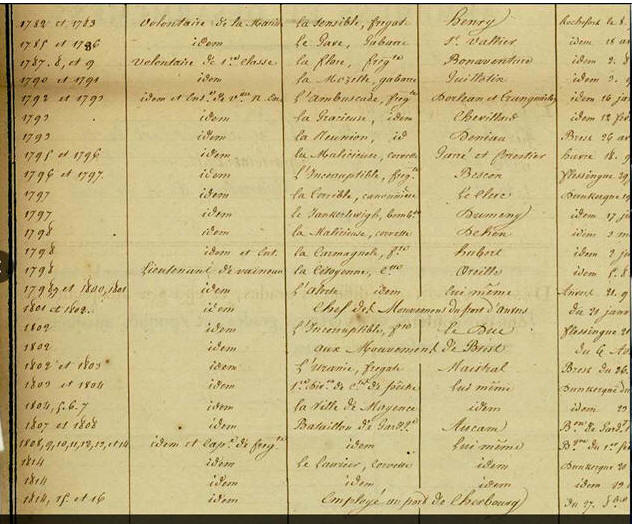 1782 et 1783 volontaire de la Marine la Sensible, frégate Henry Rochefort le 8.
1785 et 1786 idem Le Gave, Gabarre St. Vallier idem 18
1787. 8, et 9 volontaire de 1re classe la flore, frégte Bonaventure idem 2. 8
1790 et 1791 idem la Mozelle, gabarre Guillotin idem 3. 9
1792 et 1793 idem et L'Ambuscade, frégte et idem 16
1793 idem la Gracieuse, idem Chevillard idem 12
1793 idem la Réunion, id Deniau Brest 26
1795 et 1796 idem la Malicieuse, corvette et havre 18. 9
1796 et 1797. idem L'Incorruptible, fregte Bescon flessingue 29
1797 idem la Terrible, canonnière Le Clerc Dunkerque
1797 idem le idem 17
1798 idem la Malicieuse, corvette idem 2
1798 idem et la Carmagnole, fte hubert idem 2
1798 Lieutenant de vaisseau la Citoyenne, Oreille idem
1798, 9 et 1800, 1801 idem L'alerte, idem lui même Anvers 21. 9
1801 et 1802. idem Chef des Mouvemens du port d'anvers du 21
1802 idem L'Incorruptible, fte le Duc flessingue
1802 idem aux Mouvemens de Brest du 6
1802 et 1803 idem L'Uranie, frégate Maistral Brest du 26.
1803 et 1804 idem 1re de pêche lui même Dunkerque du
1804, 5. 6. 7 idem la Ville de Mayence idem idem
1807 et 1808 idem Bataillon de Aucam
1808, 9, 10, 11, 12, 13, et 14 idem et de frégte idem lui même
1814 idem Le Laurier, corvette idem Dunkerque
1814 idem idem idem
1814, 15 et 16 idem Employé au port de Cherbourg du 27.